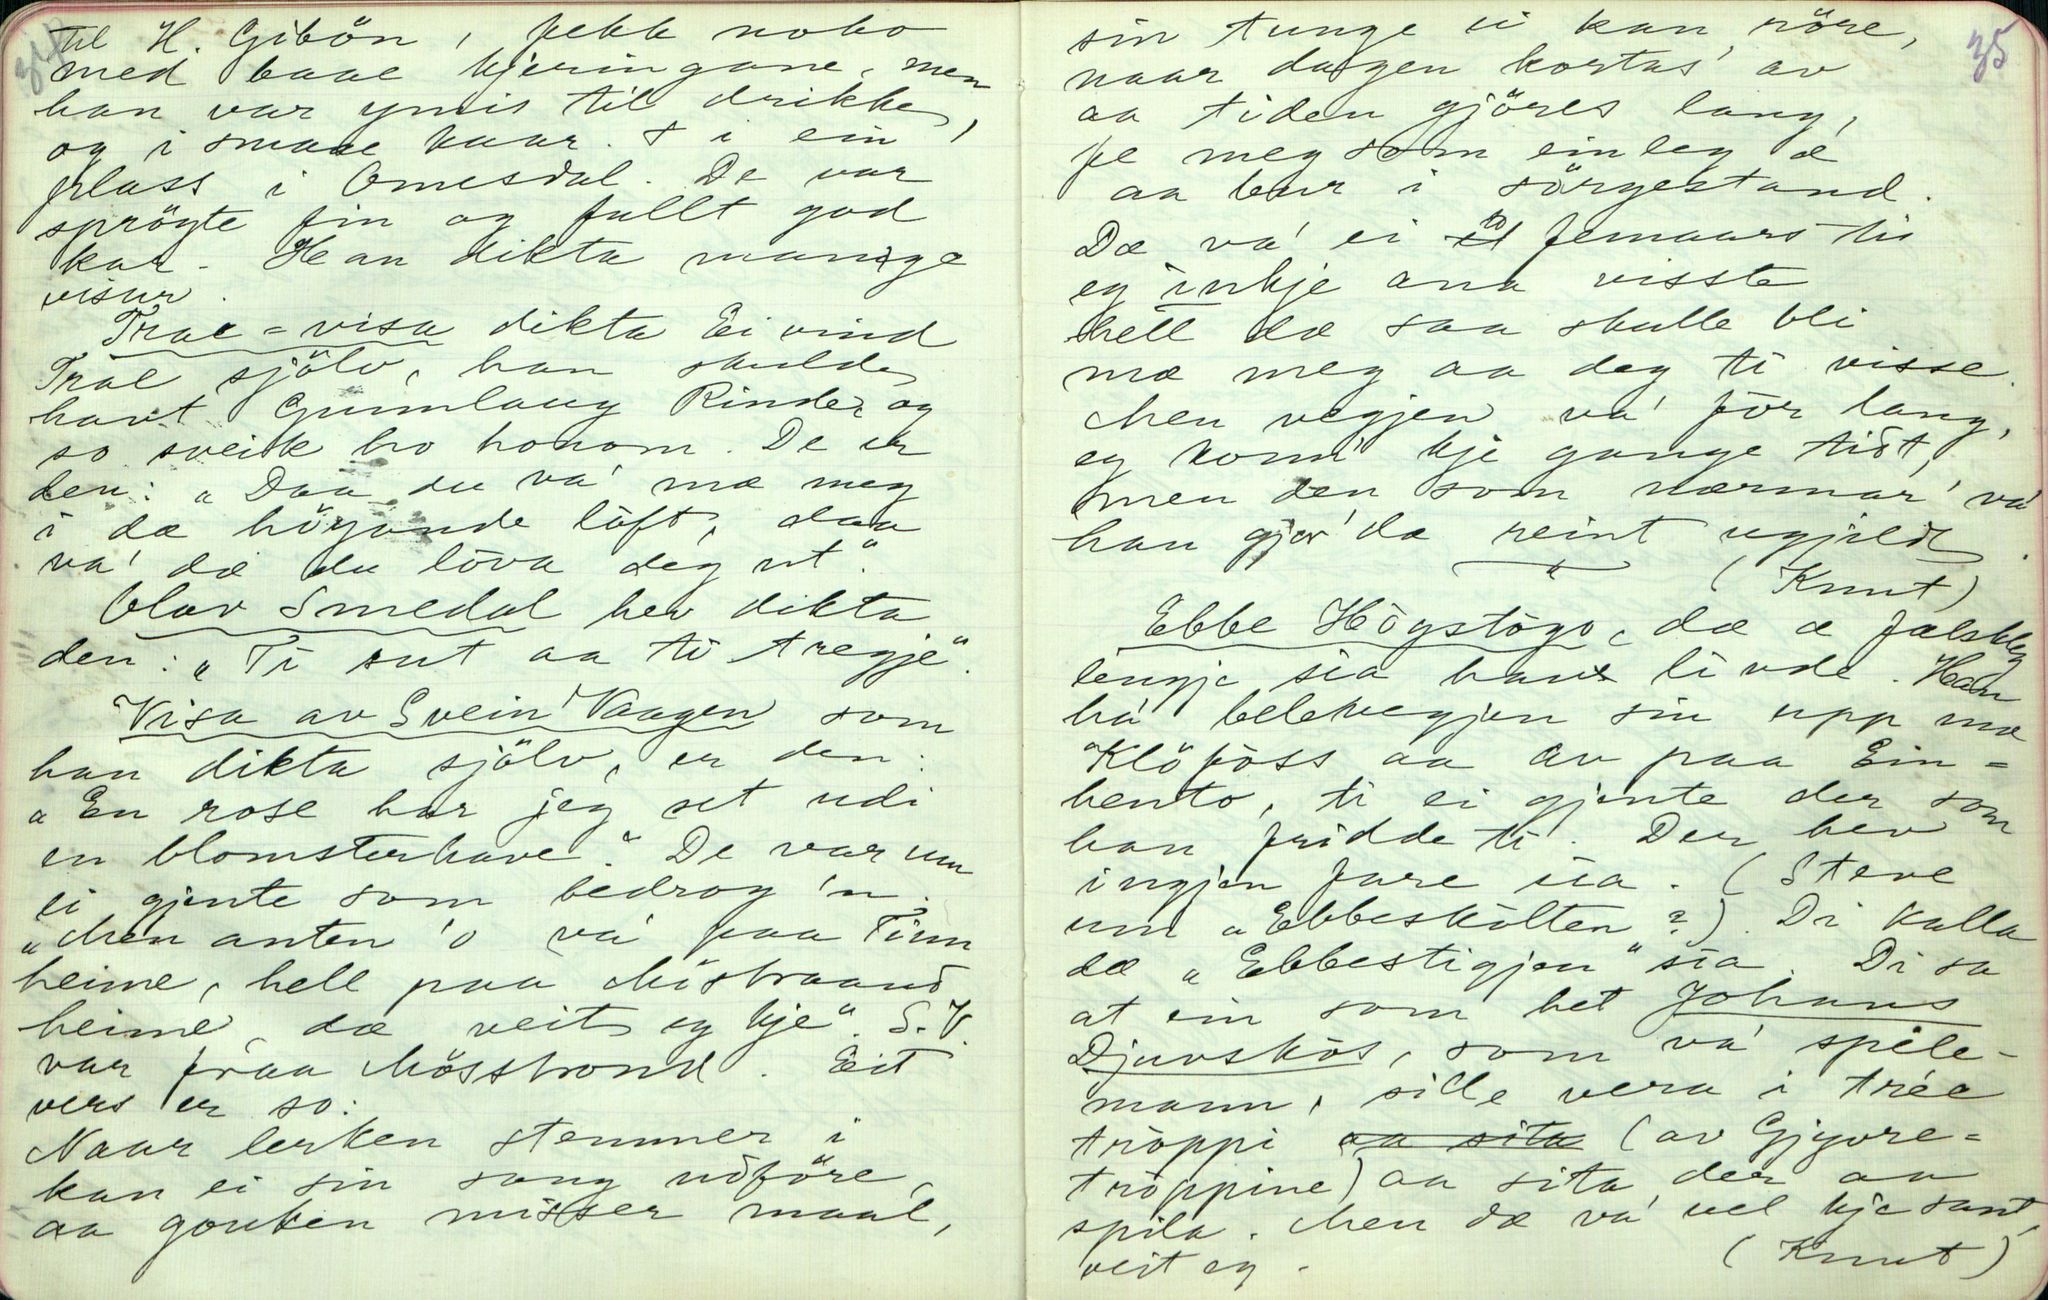 34
til H. Gibön, fekk noko
med baae kjeringane, men
han var ymis til drikke,
og i smaae kaar. s i ein
plass i Omesdal. De var
sprögte fin og fullt god
kar. Han dikta mange
visur.
Trae-visa dikta Eivind
Trae sjölv, han skulde
havt Gunnlaug Rinde, og
so sveik ho honom. De er
den: "Daa du va' mæ meg
i dæ högande loft, daa
va' dæ du lova deg ut".
Olav Smedal hev dikta
den: "Ti sut aa ti tregje".
Visa av Svein Vaagen som
han dikta sjölv, er den:
"En rose har jeg set udi
en blomsterhave". De var um
ei gjente som bedrog 'n.
"Men anten 'o va' paa Tinn
heime, hell paa Mösstraand
heime, dæ veit eg kje". S.V.
var fraa Mösstrond. Eit
vers er so:
Naar lerken stemmer i
kan ei sin sang udföre,
aa gouken misser maal,
35
sin tunge ei kan röre,
naar dagen kortas' av
aa tiden gjöres lang,
fe meg som einleg æ
aa bur i sörgestand.
Dæ va' ei to femaars ti
eg inkje ana visste
hell dæ saa skulle bli
mæ meg aa deg ti visse.
Men vegjen va' för lang,
eg konn' kje gange tidt,
men den som nærmar' va'
han gjor' dæ reint ugjildt.
(Knut)
Ebbe Högstögo, dæ æ fælskleg
lengje sia han livde. Han
ha' belevegjen sin upp mæ
Klöfoss aa av paa Ein-
hento, ti ei gjente der som
han fridde ti. Der hev
ingjen fare sia. (Steve
um "Ebbeskölten"?). Di kalla
dæ "Ebbestigjen" sia. Di sa
at ein som het Johans
Djuvskos, som va' spele-
mann, sille vera i trée
tröppi aa sita (av Gjyvre-
tröppine) aa sita der aa
spila. Men dæ va' vel kje sant,
veit eg. (Knut)